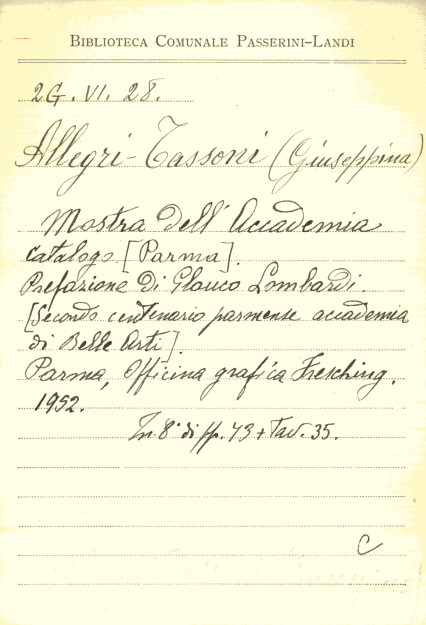 BIBLIOTECA COMUNALE PASSERINI-LANDI
2G. VI. 28.
Allegri-Tassoni (Giuseppina)
Mostra dell'Accademia
catalogo [Parma].
Prefazione di Glauco Lombardi.
[Secondo centenario parmense accademia
di Belle Arti].
Parma, Officina grafica Fresching,
1952.
In 8° di pp. 43 + Tav. 35.
C